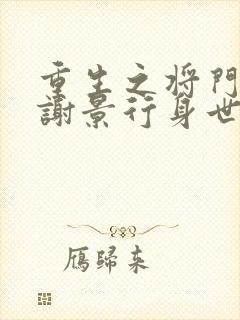 重生之将門
謝景行身世
雁歸来